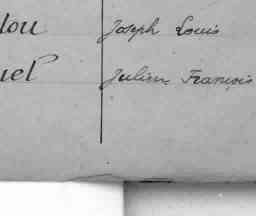 lou Joseph Louis
uel Julien François